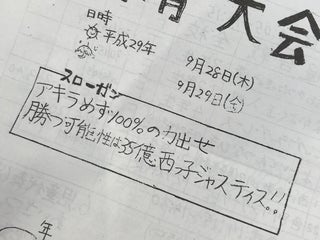 育大会
日時
平成29年
9月28日(木)
9月29日(金)
スローガン
アキラめず100%の力出せ
勝つ可能性は35億、西っ子ジャスティス!!
年